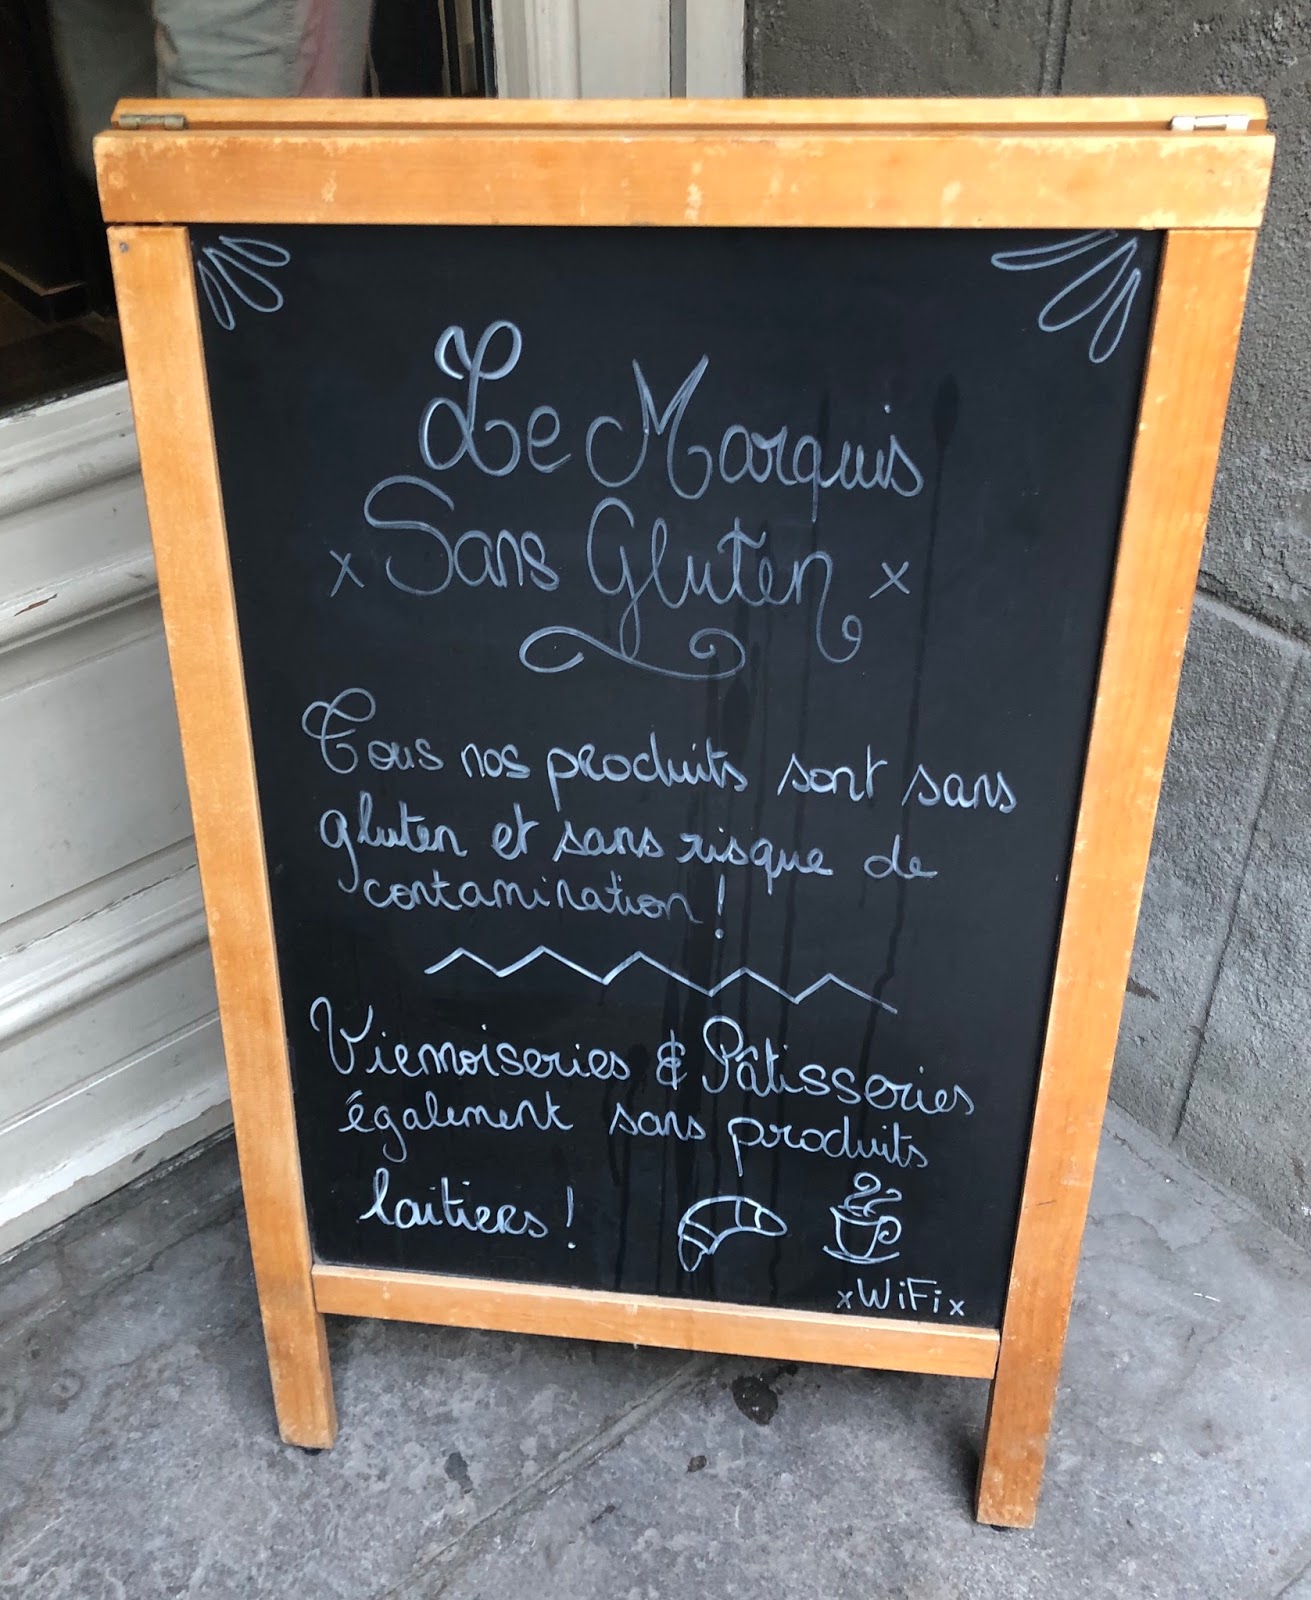 Le Marquis
x Sans Gluten x
Tous nos produits sont sans
gluten et sans risque de
contamination !
Viennoiseries & Pâtisseries
également sans produits
laitiers !
x WiFi x